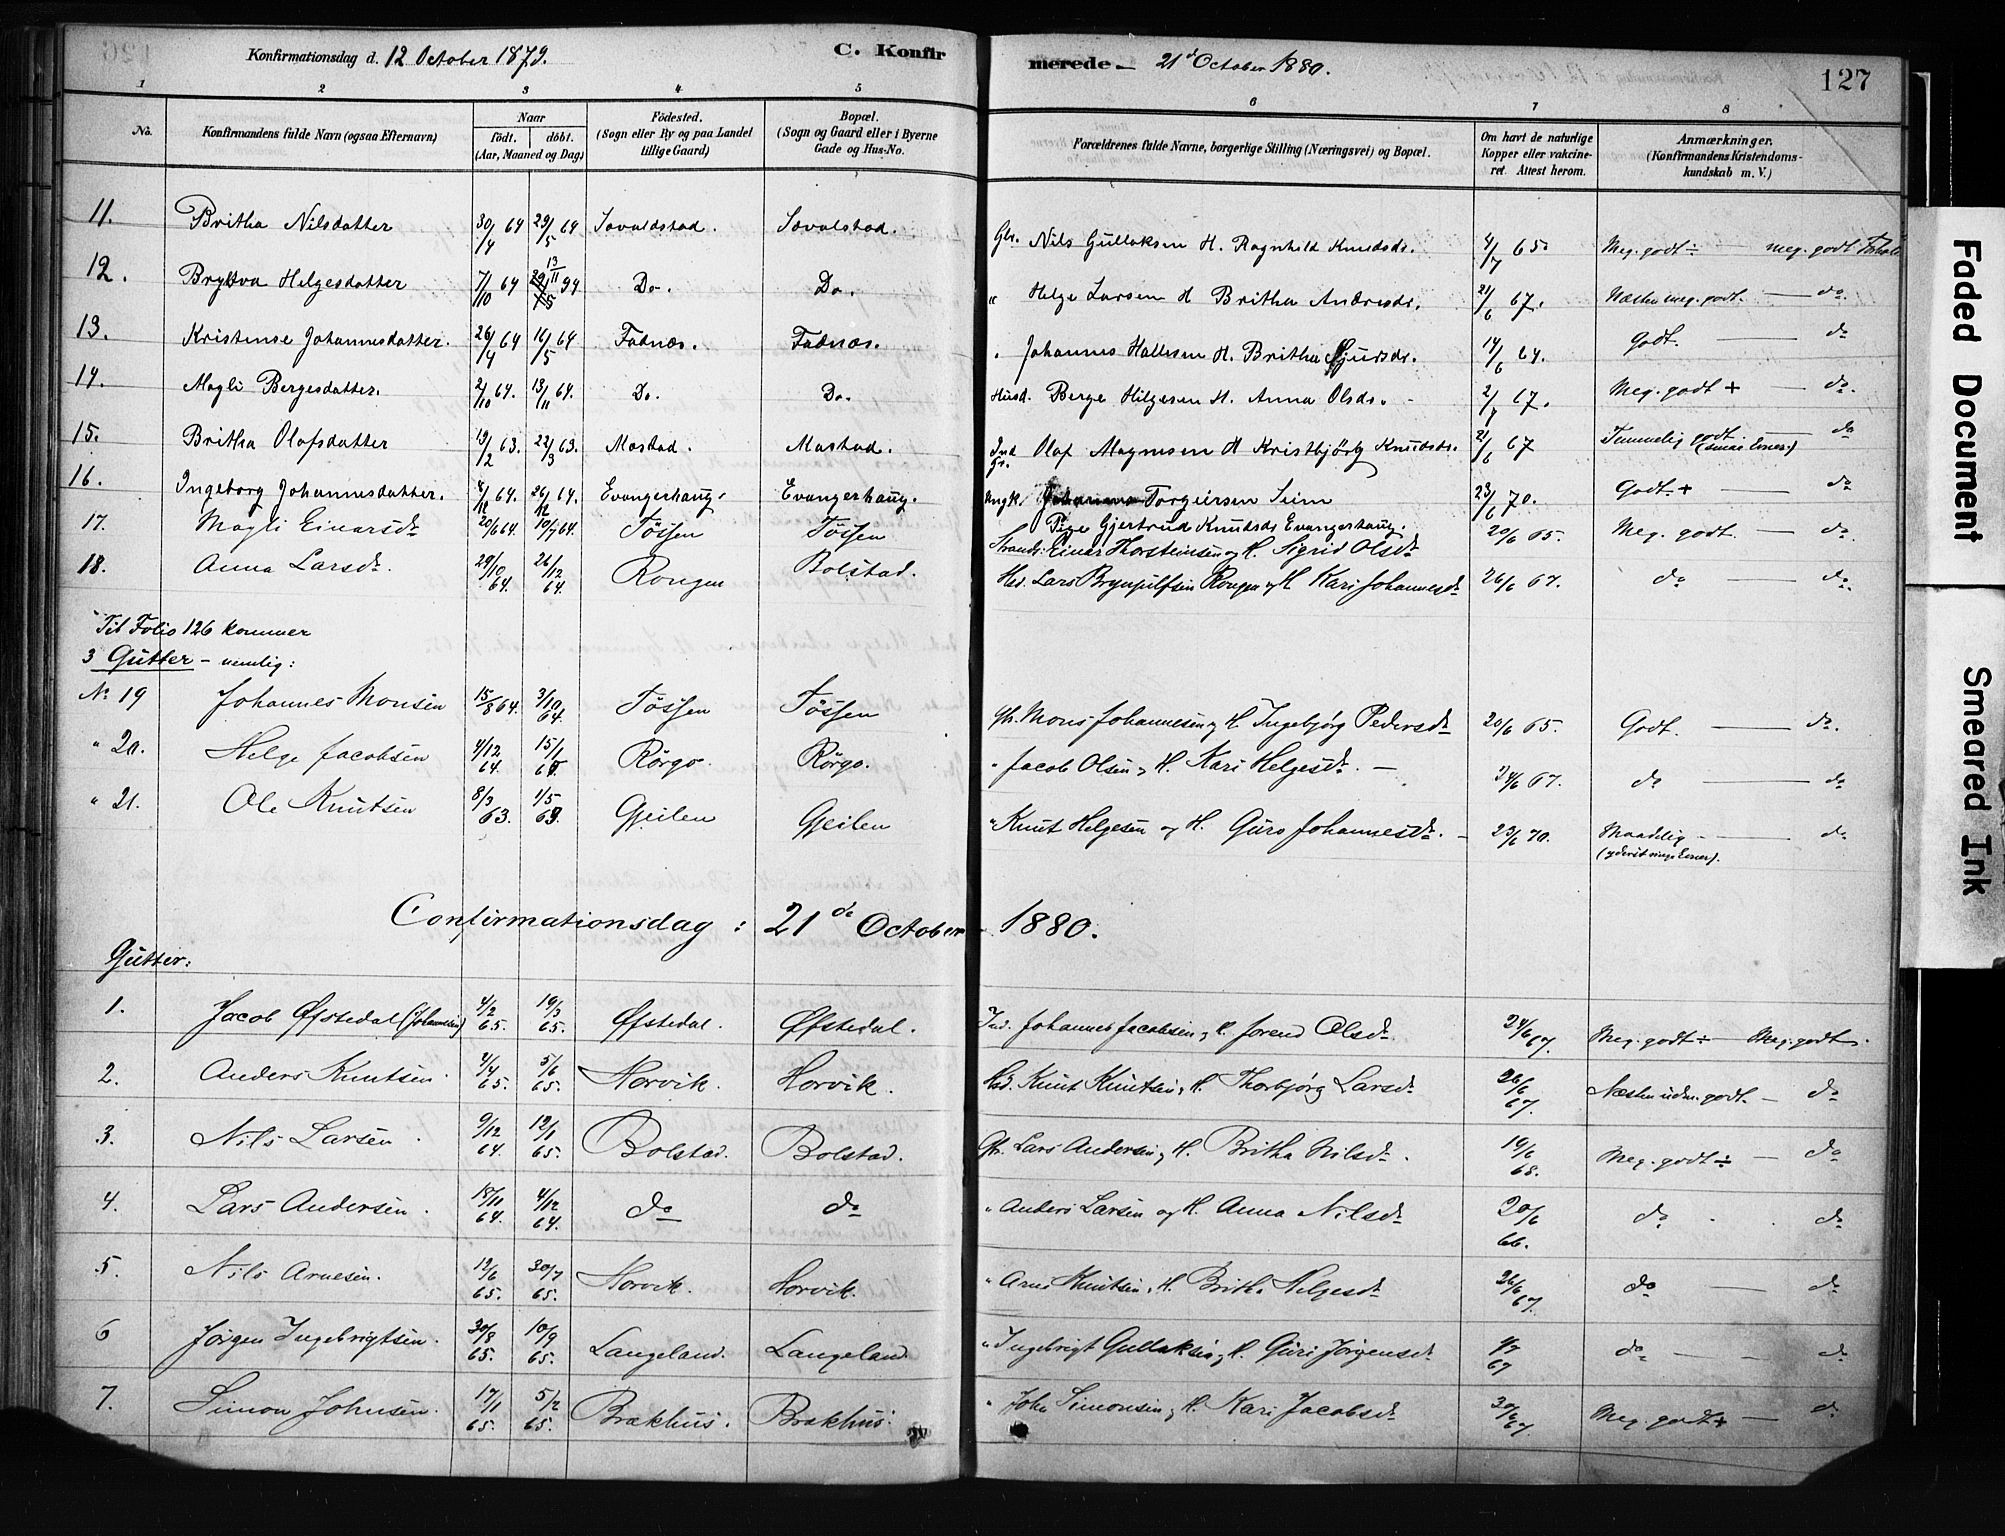 Konfirmationsdag d. 12 October 1879. C. Konfirmerede — 21de October 1880. 127
1 2 3 4 5 6 7 8
No. Konfirmandens fulde Navn (ogsaa Efternavn) Naar født. døbt. (Aar, Maaned og Dag) Fødested. (Sogn eller By og paa Landet tillige Gaard) Bopæl. (Sogn og Gaard eller i Byerne Gade og Hus-No. Forældrenes fulde Navne, borgerlige Stilling (Næringsvei) og Bopæl. Om havt de naturlige Kopper eller vakcineret. Attest herom. Anmærkninger. (Konfirmandens Kristendomskundskab m. V.)
11. Britha Nilsdatter 30/4 64 29/5 64 Gbr. Nils Gullaksen H. Ragnhild Knudsdr. 4/7 65 Meg. godt ÷ — meg. godt
12. Helgesdatter 7/10 64 13/11 Do. Do. " Helge Larsen H Britha Andersdr. 21/6 67. Næsten meg. godt. — do
13. Kristense Johannesdatter. 26/4 64 16/5 64 Fadnæs. Fadnæs. " Johannes Hallesen H. Britha Sjursdr. 14/6 64. Godt. — do
14. Magli Bergesdatter. 2/10 64. 13/11 64. Do. Do. Husd. Berge Helgesen H. Anna Olsdr. 2/7 67. Meg. godt + — do.
15. Britha Olafsdatter 19/2 63. 22/3 63. Mostad. Mostad. Olaf Magnesen H Kristbjörg Knudsdr. 21/6 67 Temmelig godt — do
16. Ingeborg Johannesdatter. 8/12 64. 26/12 64. Evangerhaug. Evangerhaug. Ungk. Torgeirsen Seim 23/6 70. Godt + — do
Pige Gjertrud Knudsdr Evangerhaug.
17. Magli Einarsdr 20/6 64 10/7 64. Tössen Tössen Strands. Einar Thorsteinsen og H. Sigrid Olsdr 20/6 65. Meg. godt. — do
18. Anna Larsdr. 29/10 64. 26/12 64. Rongen Bolstad. Hsd. Lars Brynjulfsen Rongen og H Kari Johannesdr 26/6 67. do — do
Til Folio 126 kommer
3 Gutter — nemlig:
No 19 Johannes Monsen 15/8 64. 3/10 64. Tössen Tössen Gbr. Mons Johannesen og H Ingebjørg Pedersdr 20/6 65. Godt. — do.
" 20. Helge Jacobsen 4/12 64. 15/1 65 Rörgo. Rörgo. " Jacob Olsen og H. Kari Helgesdr. — 24/6 67. do — do
" 21. Ole Knutsen 8/3 63. 1/5 63. Gjeilen Gjeilen " Knut Helgesen og H. Guro Johannesdr. — 23/6 70. Maadelig — do
(yderst ringe Evner).
Confirmationsdag: 21de October 1880.
Gutter:
1. Jacob Øfstedal (Johannesen) 4/2 65. 19/3 65. Øfstedal. Øfstedal. Ind. Johannes Jacobsen og H. Jorend Olsdr 24/6 67. Meg. godt ÷ Meg. godt.
2. Anders Knutsen. 2/4 65. 5/6 65. Horvik. Horvik. Hsd. Knut Knutsen og H. Thorbjørg Larsdr 26/6 67. Næsten udm. godt. — do
3. Nils Larsen. 9/12 64. 12/1 65. Bolstad. Bolstad. Gbr. Lars Andersen og H. Britha Nilsdr. 19/6 68. Meg. godt ÷ — do
4. Lars Andersen. 18/11 64. 4/12 64. do do " Anders Larsen og H. Anna Nilsdr 20/6 66. do do
5. Nils Arnesen. 12/6 65. 30/7 65. Horvik. Horvik. " Arne Knutsen og H. Britha Helgesdr 26/6 67. do — do
6 Jörgen Ingebrigtsen. 30/8 65. 10/9 65. Langeland. Langeland " Ingebrigt Gullaksen og H. Guri Jörgensdr 67 do — do
7. Simon Johnsen. 17/1 65. 5/2 65. Brækhus. Brækhus. " John Simonsen og H. Kari Jacobsdr 20/6 67. Meg. godt + — do
Faded Document
Smeared Ink